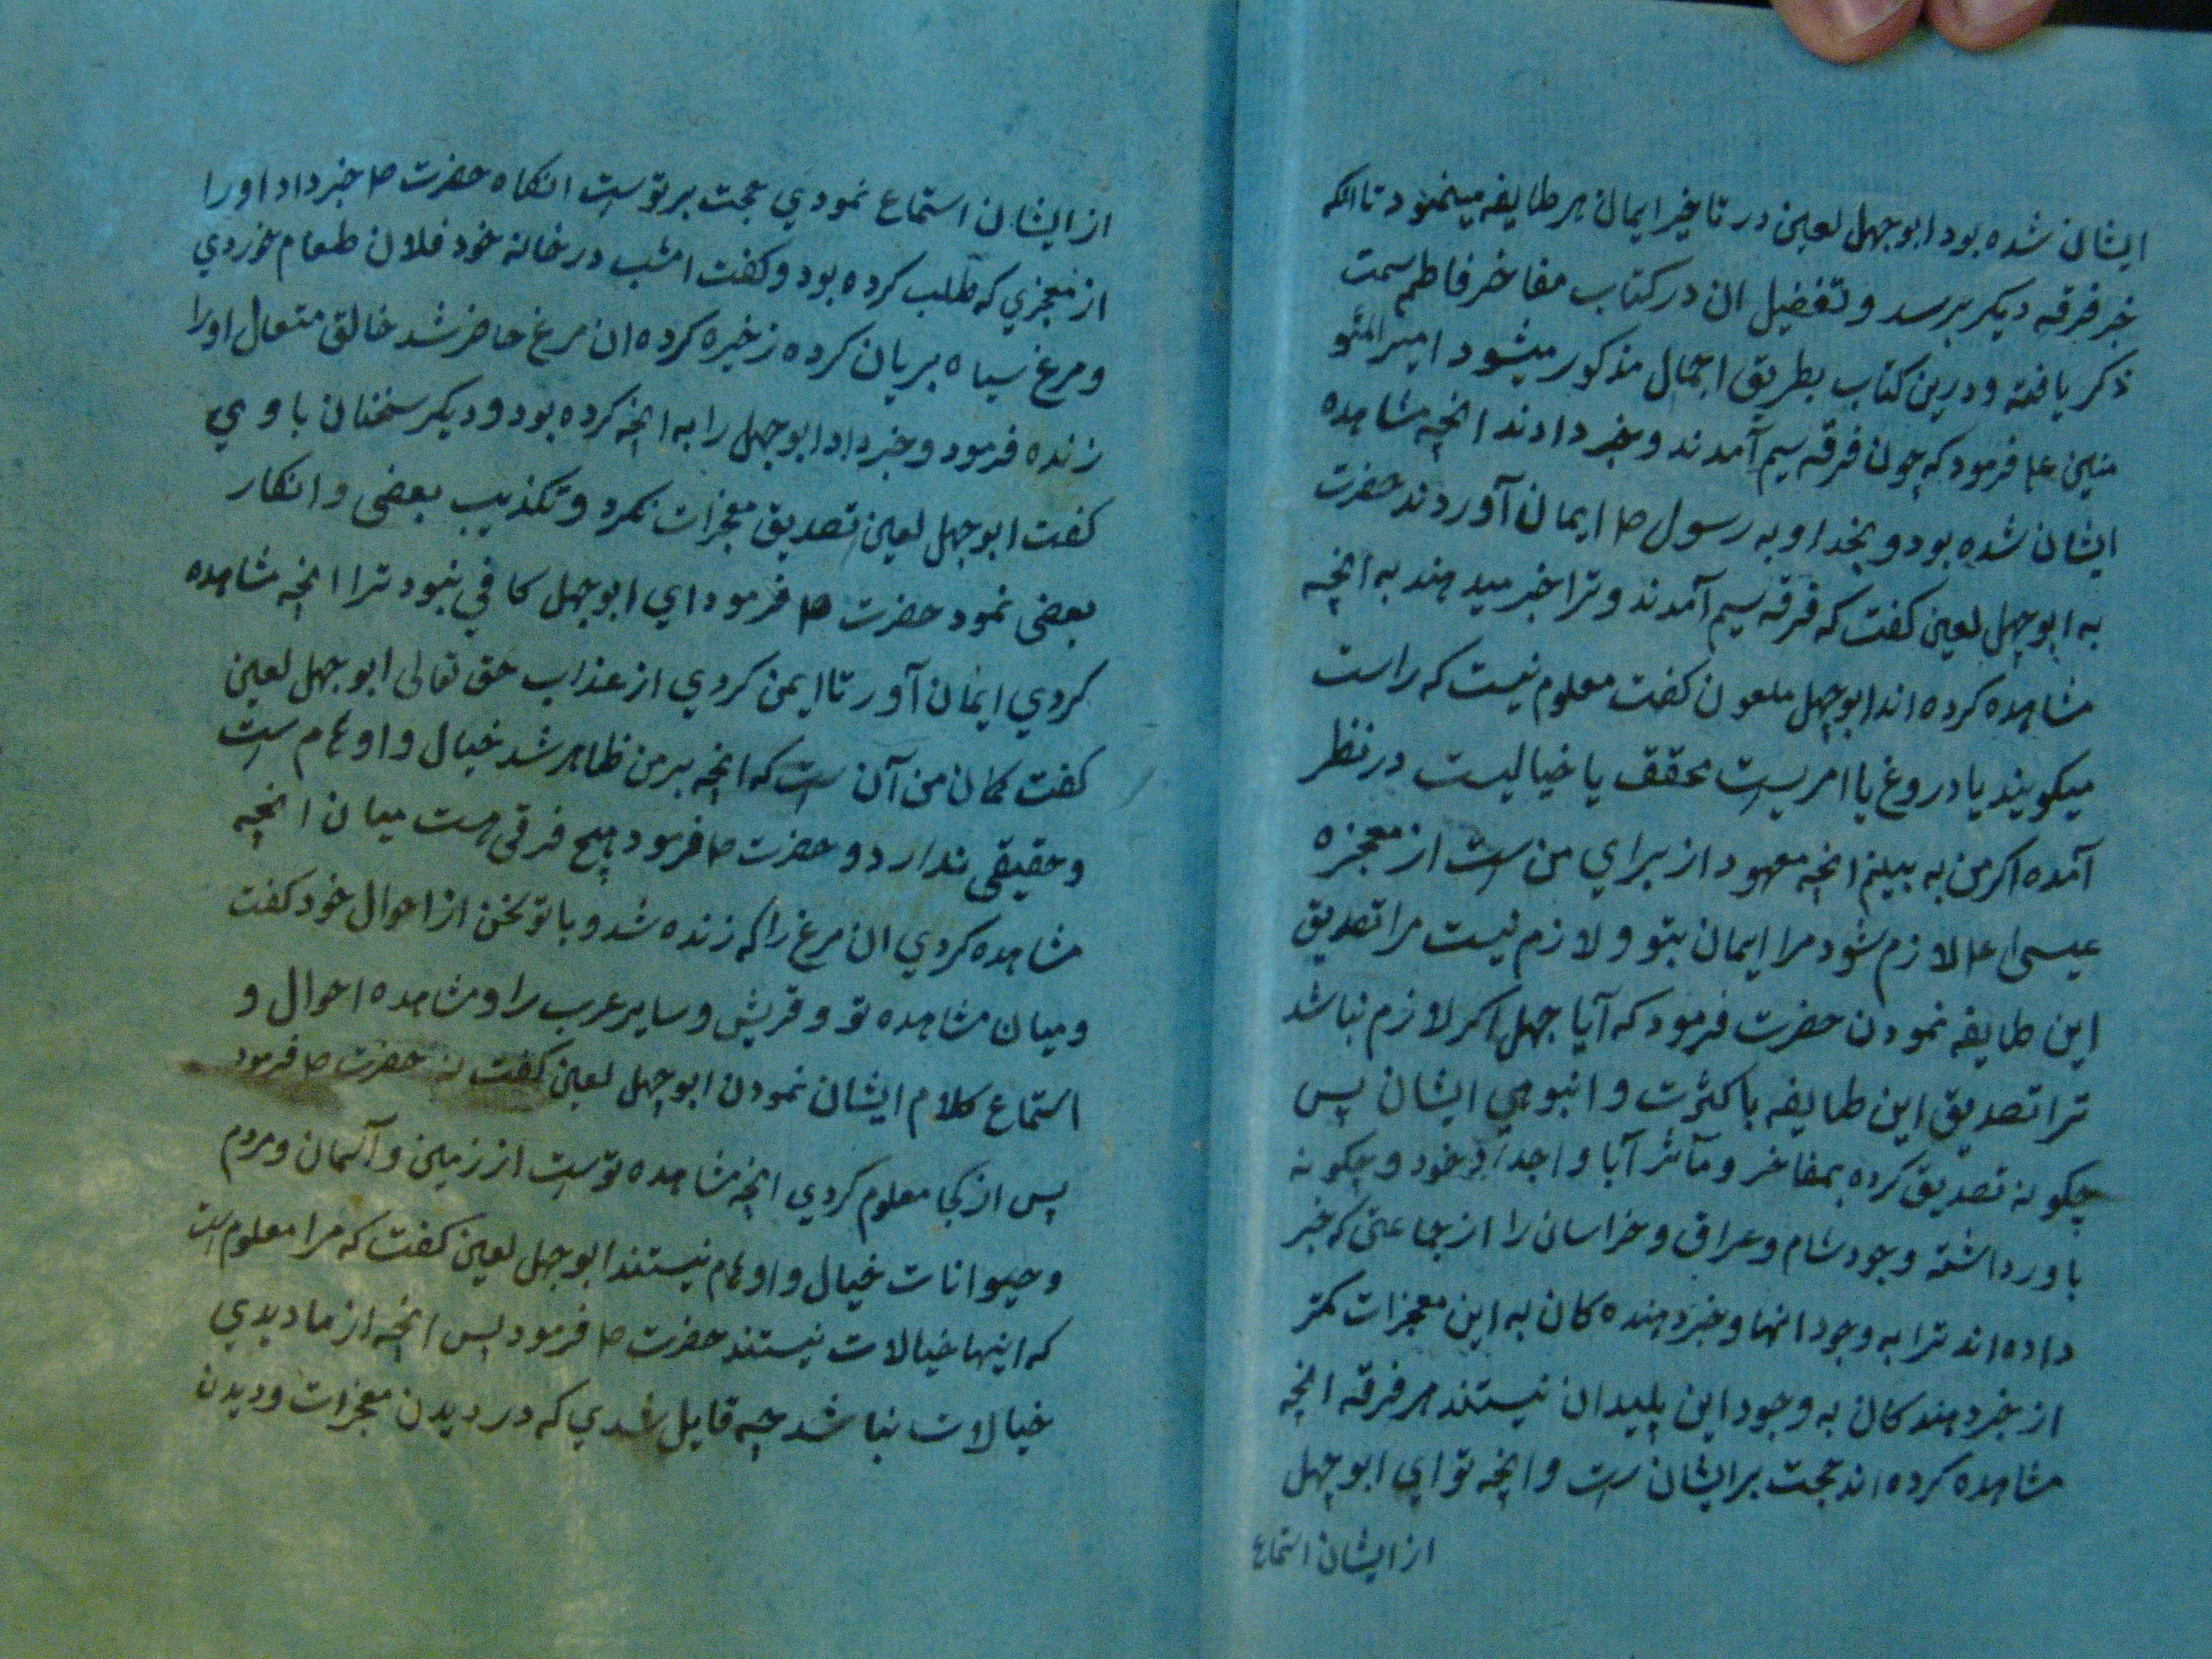 ایشان شده بود ابوجهل لعین در تاخیر ایمان هر طایفه مینمود تا انکه
خبر فرقه دیکر برسد و تفضیل ان در کتاب مفاخر فاطم سمت
ذکر یافته و درین کتاب بطریق اجمال مذکور میشود امیرالمؤ
منین ع فرمود که چون فرقه سیم آمدند و خبر دادند انچه مشاهده
ایشان شده بود و بخدا و به رسول ص ایمان آوردند حضرت
به ابوجهل لعین کفت که فرقه سیم آمدند و ترا خبر میدهند به انچه
مشاهده کرده اند ابوجهل ملعون کفت معلوم نیست که راست
میکویند یا دروغ یا امریست محقق یا خیالیست در نظر
آمده اکر من به بینم انچه معهود از برای من است از معجزه
عیسی ع لازم شود مرا ایمان بتو و لازم نیست مرا تصدیق
این طایفه نمودن حضرت فرمود که آیا جهل اکر لازم نباشد
ترا تصدیق این طایفه با کثرت و انبوهی ایشان پس
چکونه تصدیق کرده بمفاخر و مآثر آبا و اجداد خود و چکونه
باور داشته وجود شام و عراق و خراسان را از جماعتی که خبر
داده اند ترا به وجود انها و خبر دهنده کان به این معجزات کمتر
از خبر دهندکان به وجود این پلیدان نیستند هر فرقه انچه
مشاهده کرده اند حجت بر ایشان است و انچه تو ای ابوجهل
از ایشان استماع
از ایشان استماع نمودي حجت بر توست انکاه حضرت ص خبر داد او را
از معجزي که طلب کرده بود و کفت امشب در خانه خود فلان طعام خوردي
و مرغ سیاه بریان کرده زخیره کرده ان مرغ حاضر شد خالق متعال او را
زنده فرمود و خبر داد ابوجهل را به انچه کرده بود و دیکر سخنان با وي
کفت ابوجهل لعین تصدیق معجزات نکرد و تکذیب بعضی و انکار
بعضی نمود حضرت ص فرمود اي ابوجهل کافي نبود ترا انچه مشاهده
کردي ایمان آور تا ایمن کردي از عذاب حق تعالی ابوجهل لعین
کفت کمان من آن است که انچه بر من ظاهر شد خیال و اوهام است
و حقیقی ندارد و حضرت ص فرمود هیچ فرقی هست میان انچه
مشاهده کردي ان مرغ را که زنده شد و با تو سخن از احوال خود کفت
و میان مشاهده تو و قریش و سایر عرب را و مشاهده احوال و
استماع کلام ایشان نمودن ابوجهل لعین کفت نه حضرت ص فرمود
پس از کجا معلوم کردي انچه مشاهده توست از زمین و آسمان و مردم
و حیوانات خیال و اوهام نیستند ابوجهل لعین کفت که مرا معلوم است
که اینها خیالات نیستند حضرت ص فرمود پس انچه از ما دیدي
خیالات نباشد چه قایل شدي که در دیدن معجزات و دیدن